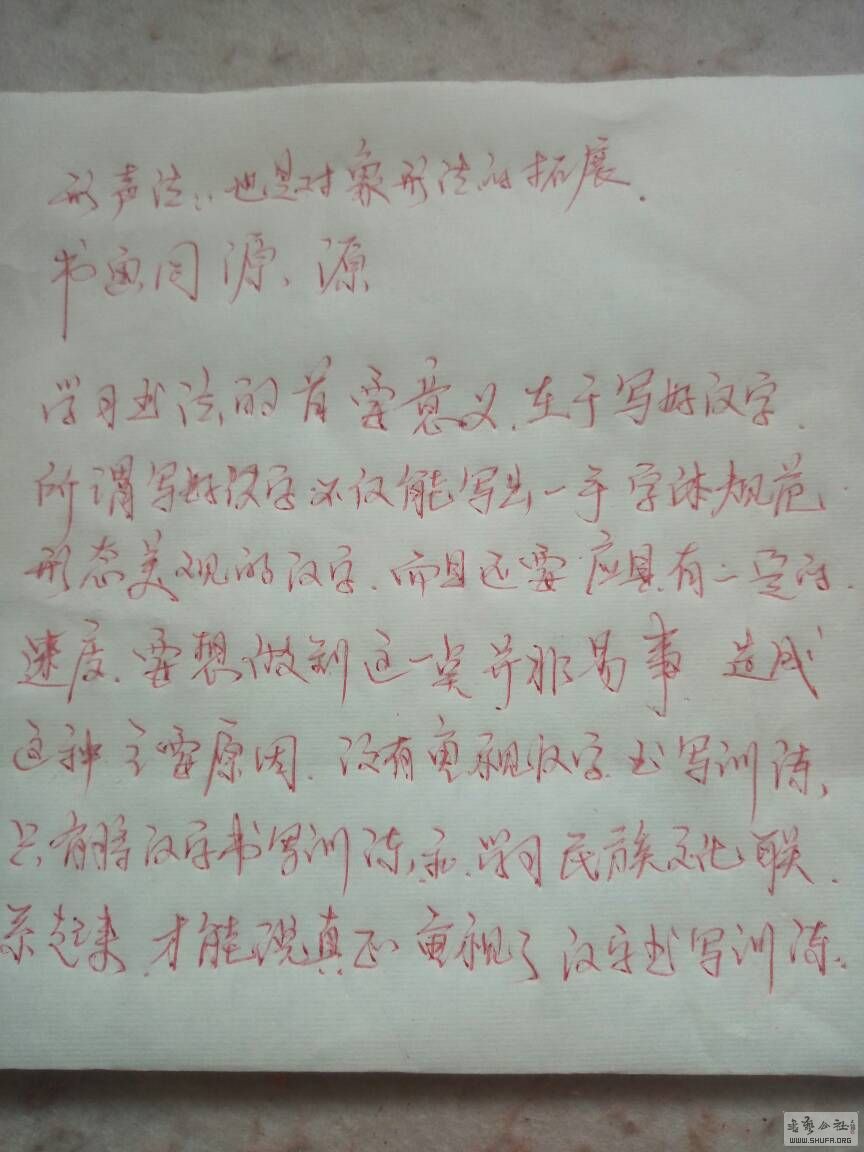 形声法:也是对象形法的拓展.
书画同源、源
学习书法的首要意义.在于写好汉字.
所谓写好汉字不仅能写出一手字体规范
形态美观的汉字.而且还要应具有一定的.
速度.要想做到这一点并非易事 造成
这种主要原因.没有重视汉字书写训练,
只有将汉字书写训练,和.学习民族文化联.
系起来.才能说真正重视了汉字书写训练.
书艺公社
WWW.SHUFA.ORG